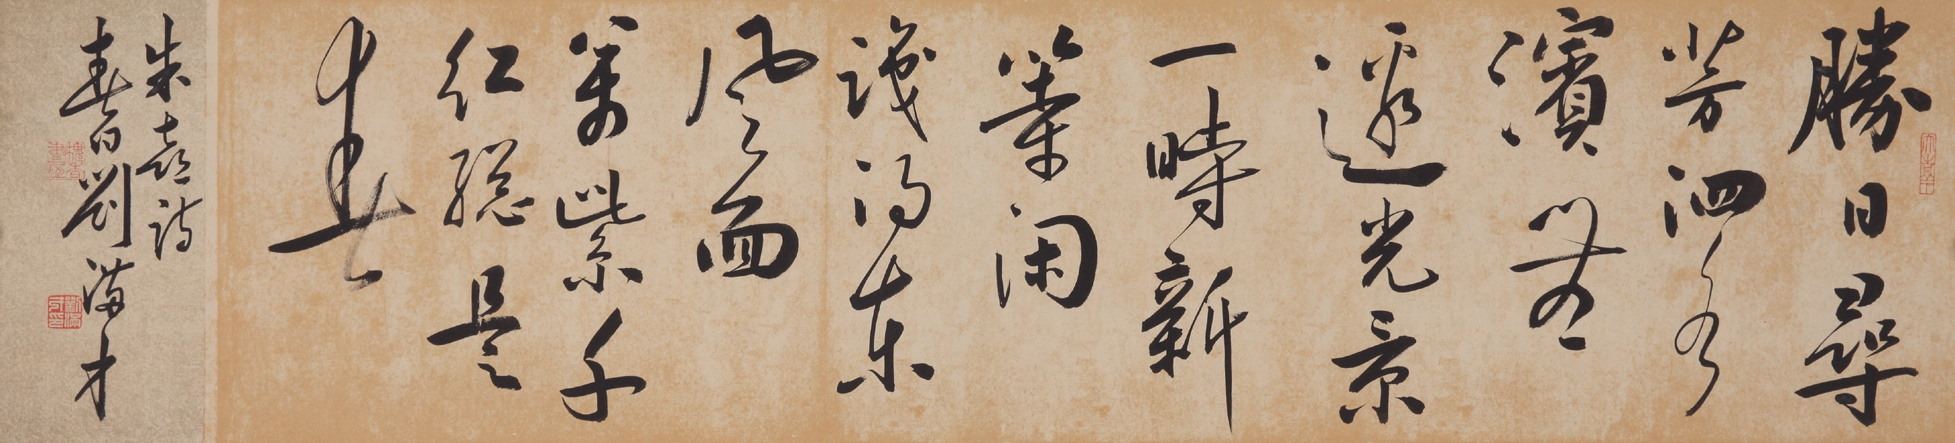 勝日尋
芳泗水
濱無
邊光景
一時新
等閑
識得東
風面
萬紫千
紅總是
春
朱熹詩
春日劉滿才
劉滿才印